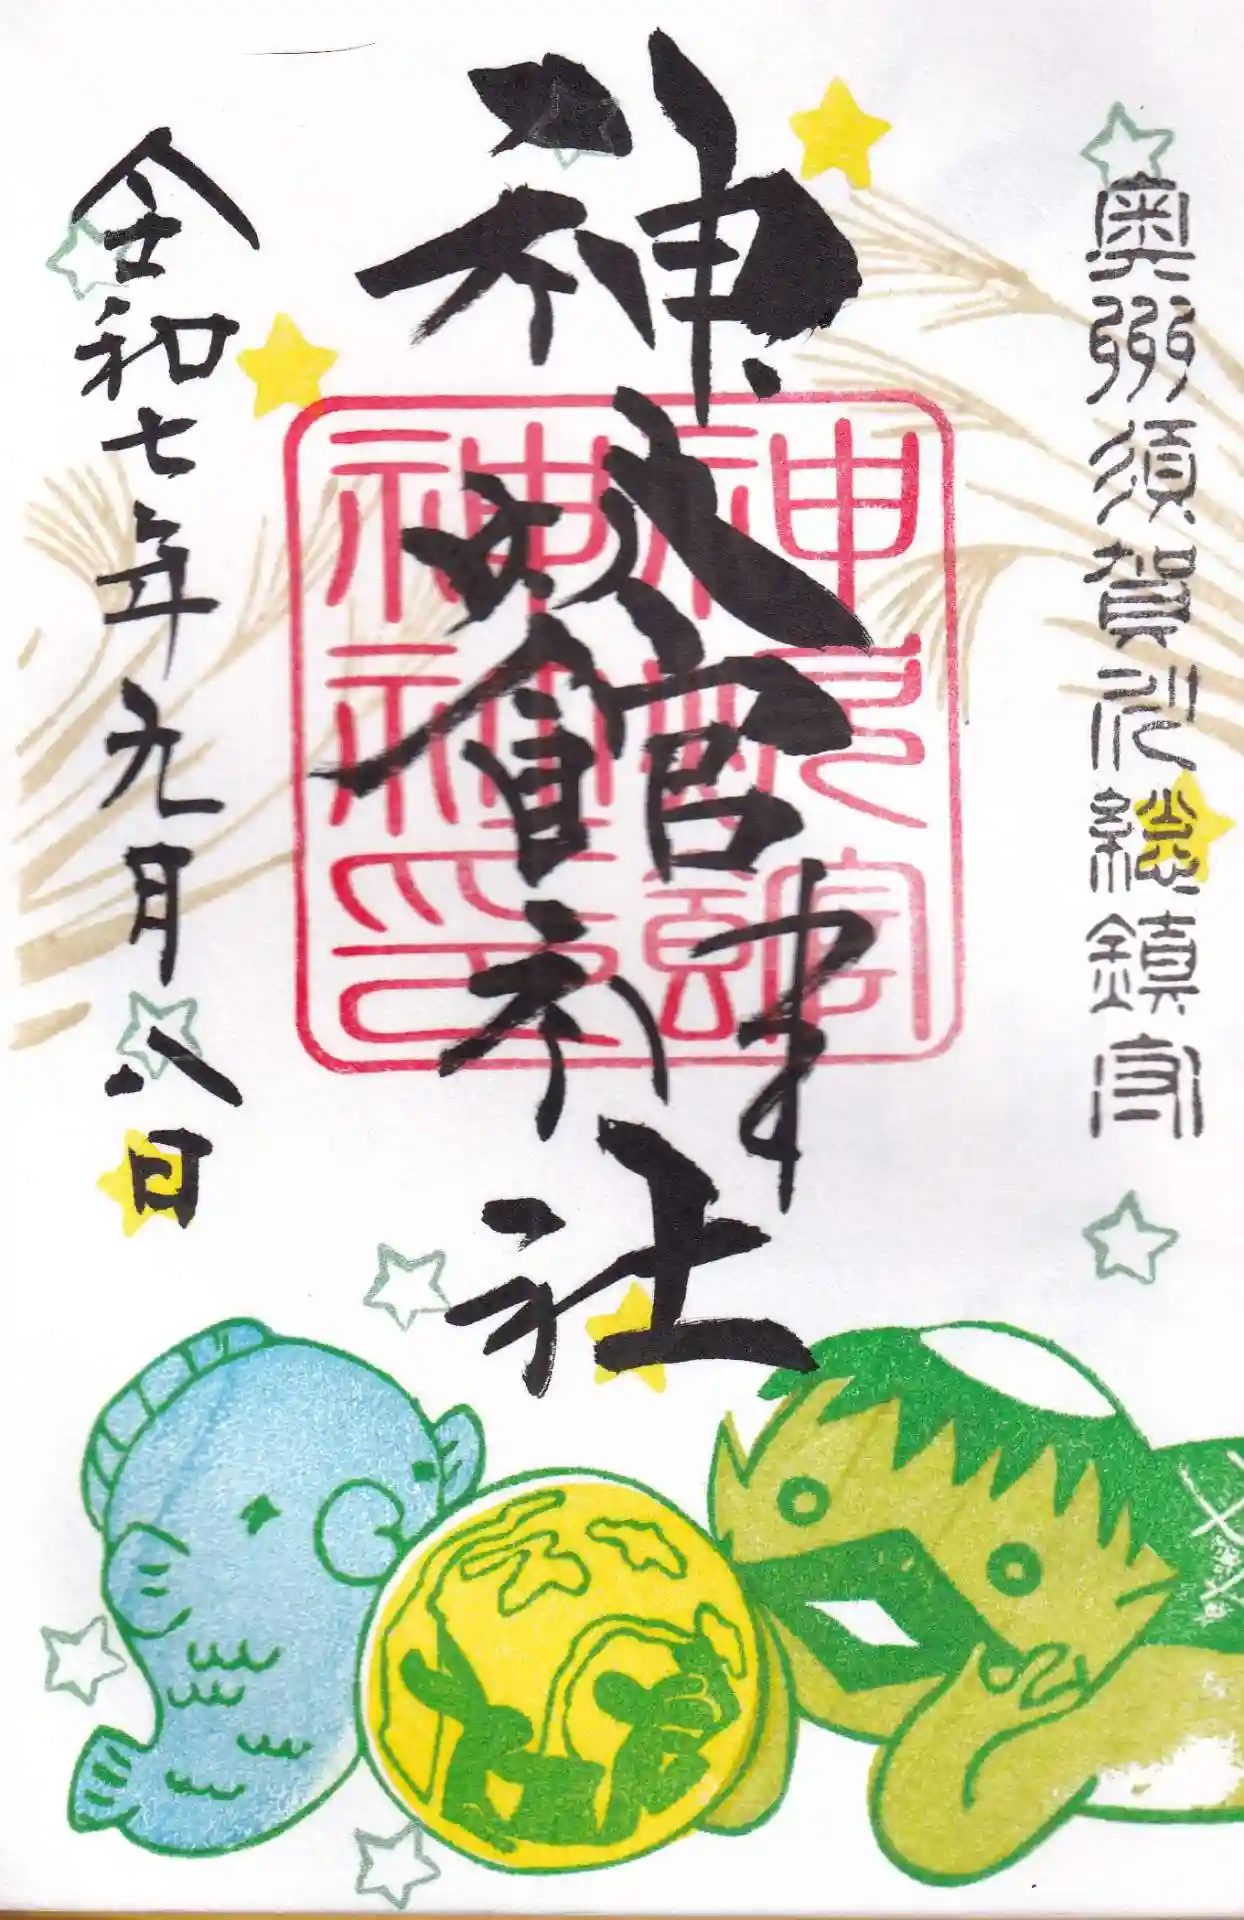 奥州須賀川総鎮守
神炊館神社
神炊館神社印
令和七年九月八日